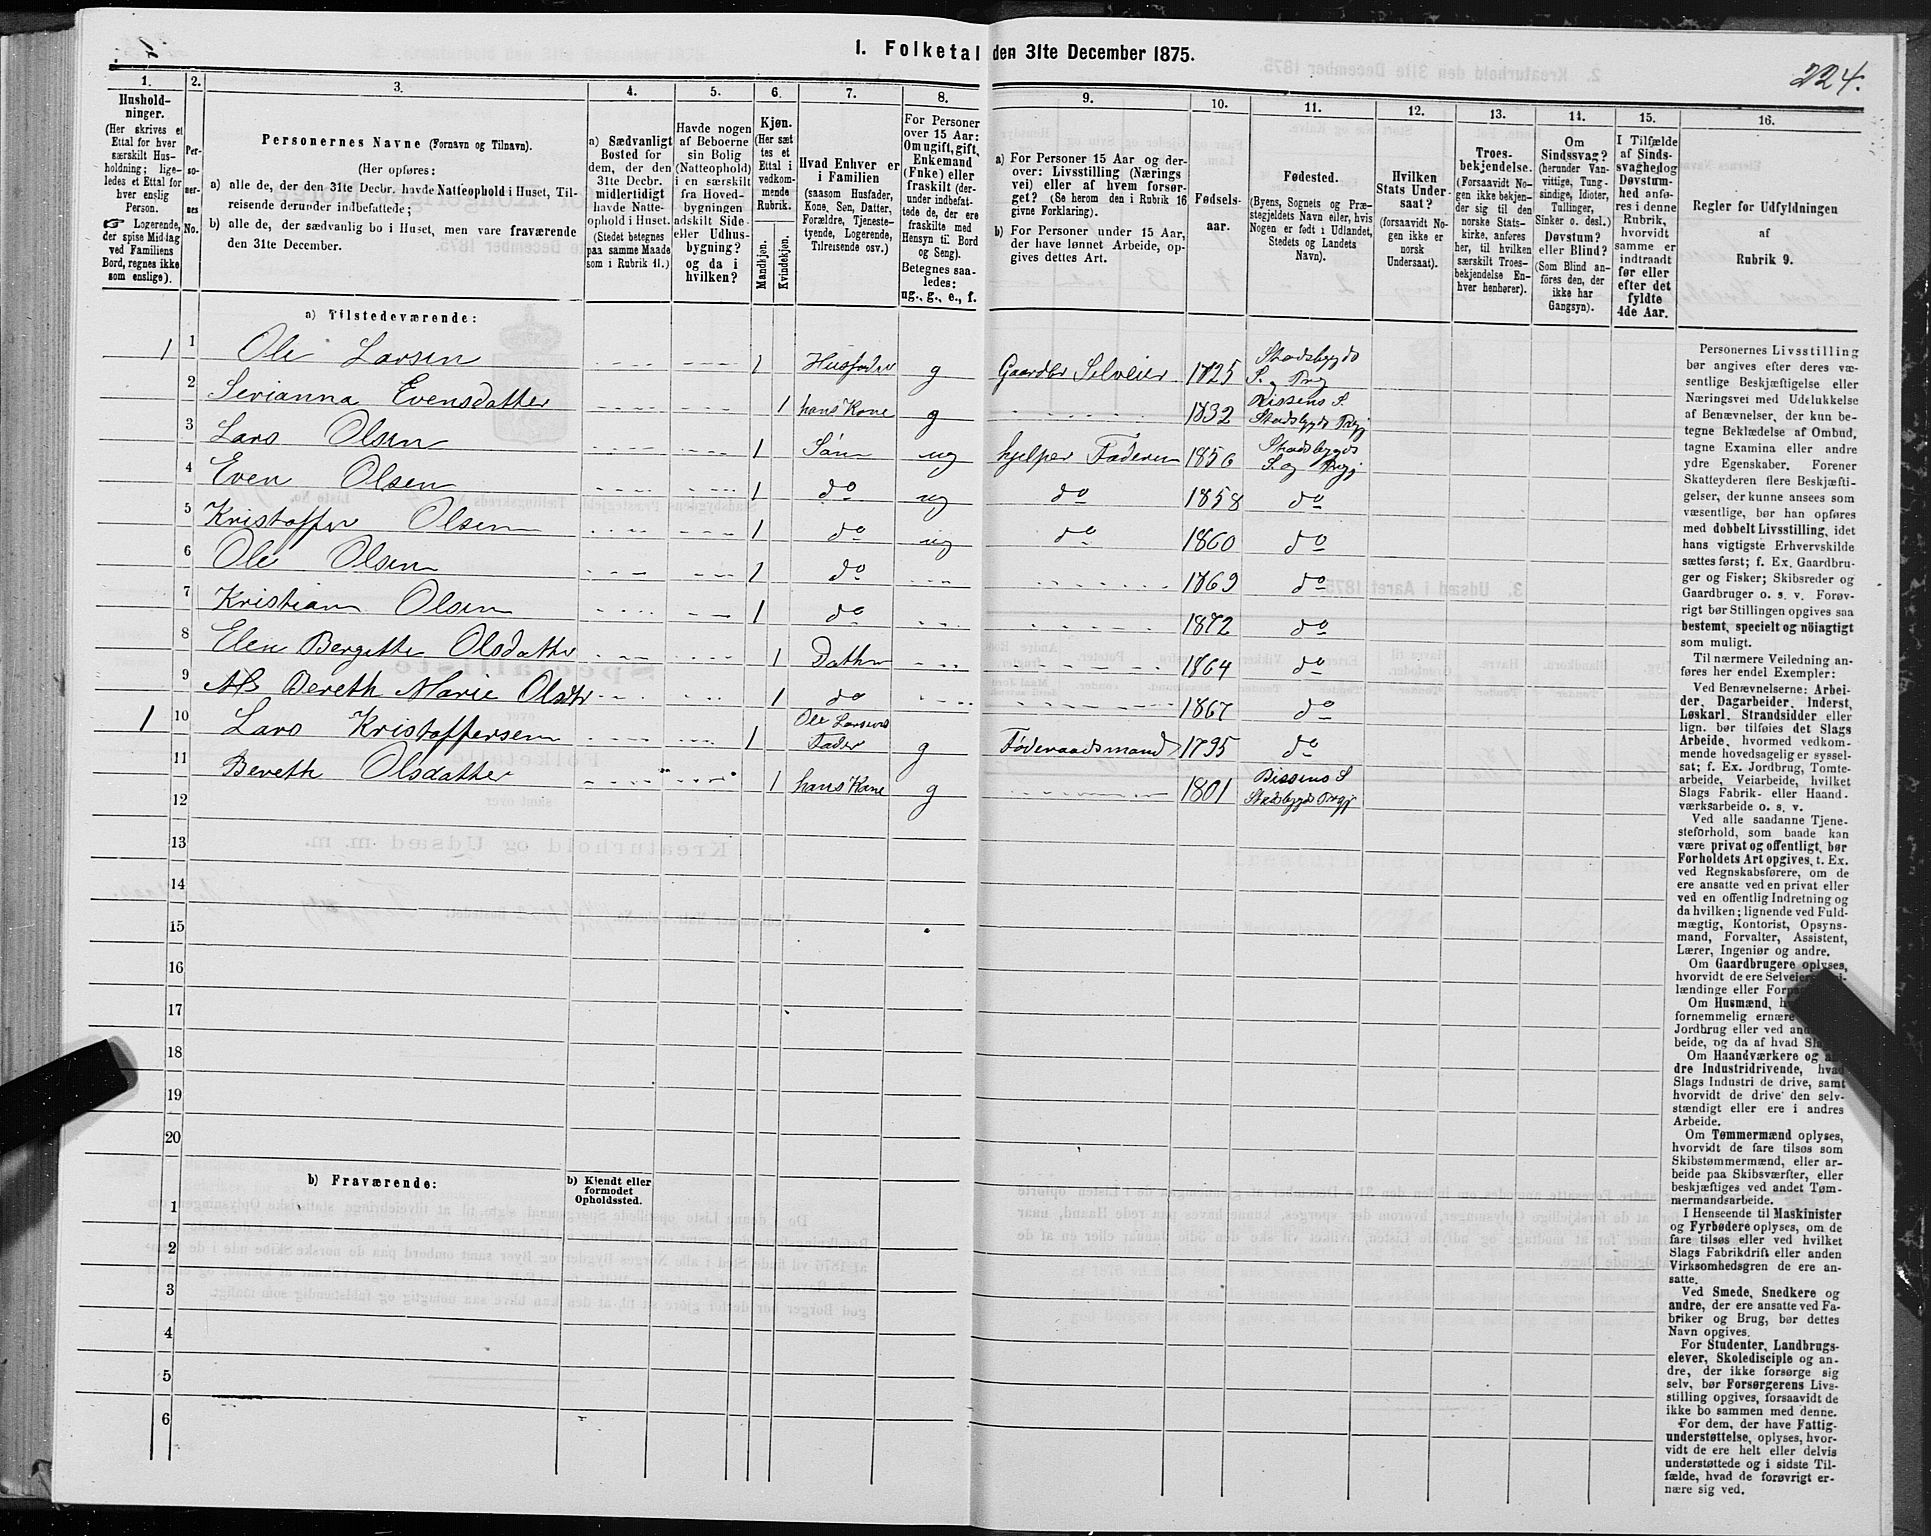 1. Folketal den 31te December 1875.
224.
1.
Hushold-
ninger.
(Her skrives et
Ettal for hver
særskilt Hus-
holdning; lige-
ledes et Ettal for
hver enslig
Person.
☞ Logerende,
der spise Middag
ved Familiens
Bord, regnes ikke
som enslige).
2.
Per-
so-
ner-
nes
No.
3.
Personernes Navne (Fornavn og Tilnavn).
(Her opføres:
a) alle de, der den 31te Decbr. havde Natteophold i Huset, Til-
reisende derunder indbefattede;
b) alle de, der sædvanlig bo i Huset, men vare fraværende
den 31te December.
4.
a) Sædvanligt
Bosted for
dem, der den
31te Decbr.
midlertidigt
havde Natte-
ophold i Huset.
(Stedet betegnes
paa samme Maade
som i Rubrik 11.)
5.
Havde nogen
af Beboerne
sin Bolig
(Natteophold)
i en særskilt
fra Hoved-
bygningen
adskilt Side-
eller Udhus-
bygning?
og da i
hvilken?
6.
Kjøn.
(Her sæt-
tes et
Ettal i
vedkom-
mende
Rubrik.
Mandkjøn.
Kvindekjøn.
7.
Hvad Enhver er
i Familien
(saasom Husfader,
Kone, Søn, Datter,
Forældre, Tjeneste-
tyende, Logerende,
Tilreisende osv.)
8.
For Personer
over 15 Aar:
Om ugift, gift,
Enkemand
(Enke) eller
fraskilt (der-
under indbefat-
tede de, der ere
fraskilte med
Hensyn til Bord
og Seng).
Betegnes saa-
ledes:
ug., g., e., f.
9.
a) For Personer 15 Aar og der-
over: Livsstilling (Nærings
vei) eller af hvem forsør-
get? (Se herom den i Rubrik 16
givne Forklaring).
b) For Personer under 15 Aar,
der have lønnet Arbeide, op-
gives dettes Art.
10.
Fødsels-
aar.
11.
Fødested.
(Byens, Sognets og Præ-
stegjeldets Navn eller, hvis
Nogen er født i Udlandet,
Stedets og Landets
Navn).
12.
Hvilken
Stats Under-
saat?
(forsaavidt No-
gen ikke er
norsk
Undersaat).
13.
Troes-
bekjendelse.
(Forsaavidt No-
gen ikke bekjen-
der sig til den
norske Stats-
kirke, anføres
her, til hvilken
særskilt Troes-
bekjendelse En-
hver henhører).
14.
Om
Sindssvag?
(herunder Van-
vittige, Tung-
sindige, Idioter,
Tullinger,
Sinker o. desl.)
Døvstum?
eller Blind?
(Som Blind an-
føres den, der
ikke har
Gangsyn).
15.
I Tilfælde
af Sinds-
svaghed og
Døvstum-
hed anfø-
res i denne
Rubrik,
hvorvidt
samme er
indtraadt
før eller
efter det
fyldte
4de Aar.
16.
Regler for Udfyldningen
af
Rubrik 9.
a) Tilstedeværende:
1 1 Ole Larsen 1 Husfader g Gaardbr Selveier 1825 Stadsbygds S. og Prgj
2 Serianna Evensdatter 1 hans Kone g 1832 Rissens S Stadsbygds Prgj
3 Lars Olsen 1 Søn ug hjelper Faderen 1856 Stadsbygds S. og Prgj
4 Even Olsen 1 do ug do 1858 do
5 Kristoffer Olsen 1 do ug do 1860 do
6 Ole Olsen 1 do 1869 do
7 Kristian Olsen 1 do 1872 do
8 Elen Bergitte Olsdatter 1 Datter 1864 do
9 Bereth Marie Olsdtr 1 do 1867 do
1 10 Lars Kristoffersen 1 Ole Larsens Fader g Føderaadsmand 1795 do
11 Bereth Olsdatter 1 hans Kone g 1801 Rissens S Stadsbygds Prgj
12
13
14
15
16
17
18
19
20
b) Fraværende:
b) Kjendt eller
formodet
Opholdssted.
1
2
3
4
5
6
Personernes Livsstilling
bør angives efter deres væ-
sentlige Beskjæftigelse eller
Næringsvei med Udelukkelse
af Benævnelser, der kun be-
tegne Beklædelse af Ombud,
tagne Examina eller andre
ydre Egenskaber. Forener
Skatteyderen flere Beskjæfti-
gelser, der kunne ansees som
væsentlige, bør han opføres
med dobbelt Livsstilling, idet
hans vigtigste Erhvervskilde
sættes først; f. Ex. Gaardbru-
ger og Fisker; Skibsreder og
Gaardbruger o. s. v. Forøv-
rigt bør Stillingen opgives saa
bestemt, specielt og nöiagtigt
som muligt.
Til nærmere Veiledning an-
føres her endel Exempler:
Ved Benævnelserne: Arbei-
der, Dagarbeider, Inderst,
Løskarl, Strandsidder eller
lign. bør tilføies det Slags
Arbeide, hvormed vedkom-
mende hovedsagelig er syssel-
sat; f. Ex. Jordbrug, Tomte-
arbeide, Veiarbeide, hvilket
Slags Fabrik- eller Haand-
værksarbeide o. s. v.
Ved alle saadanne Tjene-
steforhold, som baade kan
være privat og offentligt, bør
Forholdets Art opgives, t. Ex.
ved Regnskabsførere, om de
ere ansatte ved en privat eller
ved en offentlig Indretning og
da hvilken; lignende ved Fuld-
mægtig, Kontorist, Opsyns-
mand, Forvalter, Assistent,
Lærer, Ingeniør og andre.
Om Gaardbrugere oplyses,
hvorvidt de ere Selveiere,
lændinge eller
Om Husmænd,
fornemmelig ernære
Jordbrug eller ved
beide, og da af hvad
Om Haandværkere og an-
dre Industridrivende, hvad
Slags Industri de drive, samt
hvorvidt de drive den selv-
stændigt eller ere i andres
Arbeide.
Om Tømmermænd oplyses,
hvorvidt de fare tilsøs som
Skibstømmermænd, eller ar-
beide paa Skibsværfter, eller
beskjæftiges ved andet Tøm-
mermandsarbeide.
I Henseende til Maskinister
og Fyrbødere oplyses, om de
fare tilsøs eller ved hvilket
Slags Fabrikdrift eller anden
Virksomhedsgren de ere an-
satte.
Ved Smede, Snedkere og
andre, der ere ansatte ved Fa-
briker og Brug, bør dettes
Navn opgives.
For Studenter, Landbrugs-
elever, Skoledisciple og an-
dre, der ikke forsørge sig
selv, bør Forsørgerens Livs-
stilling opgives, forsaavidt de
ikke bo sammen med denne.
For dem, der have Fattig-
understøttelse, oplyses, hvor-
vidt de ere helt eller delvis
understøttede og i sidste Til-
fælde, hvad de forøvrigt er-
nære sig ved.